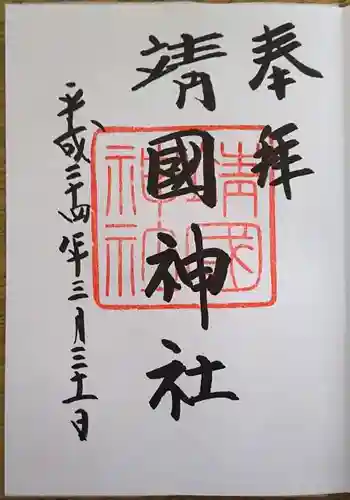 奉拝
靖國神社
靖國神社
平成二十四年三月三十一日